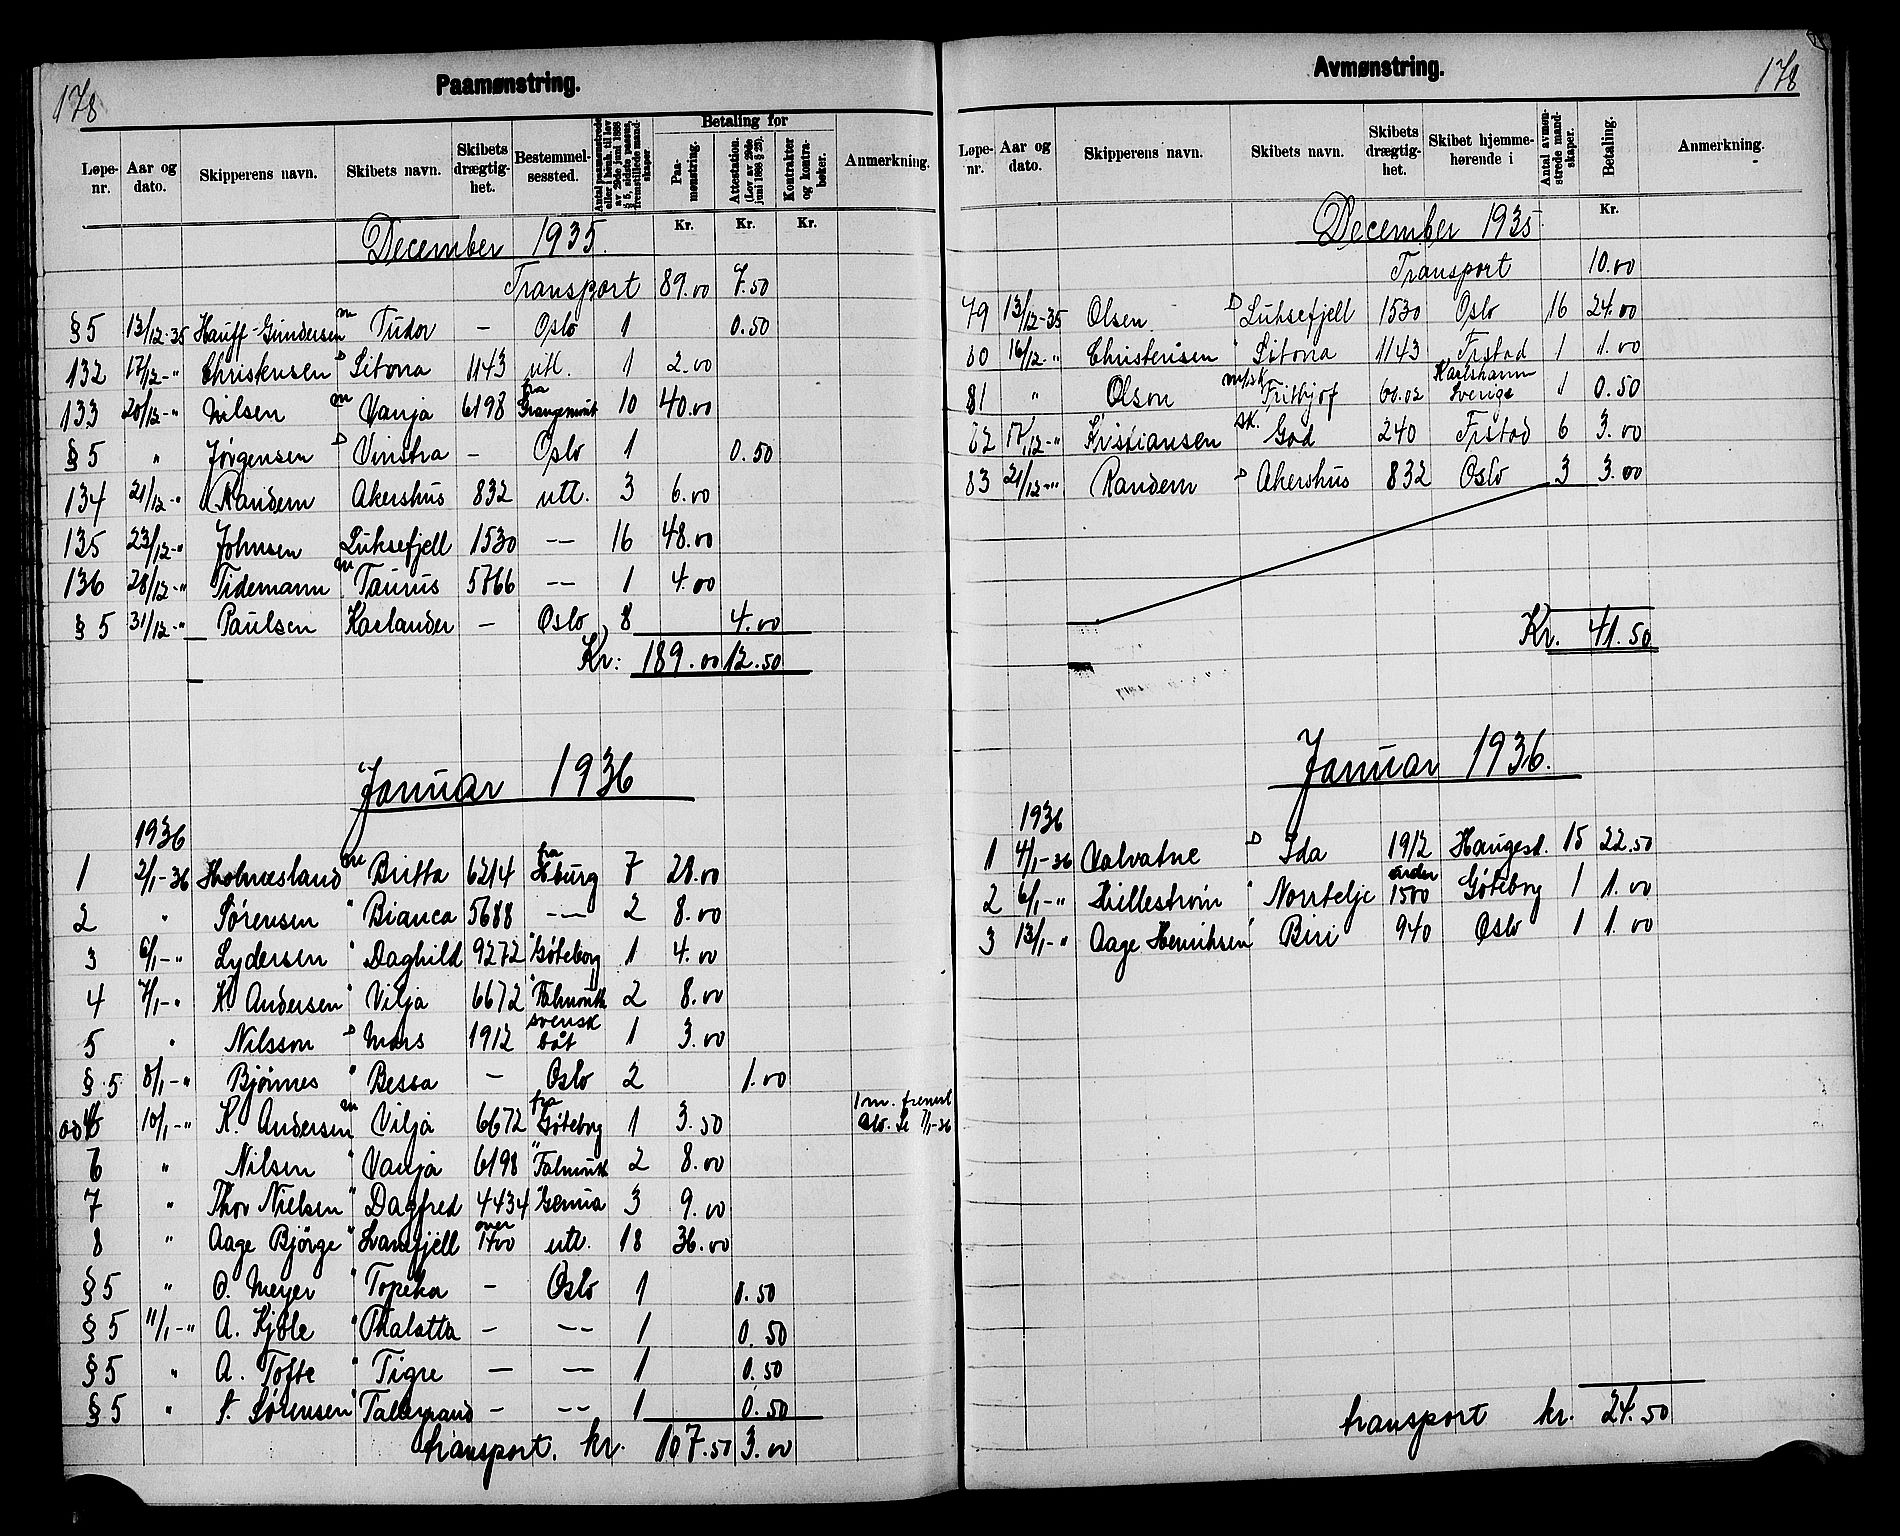 178
Paamønstring.
Løpe-nr. Aar og dato. Skipperens navn. Skibets navn. Skibets drægtig-het. Bestemmel-sessted. Antal paamønstrede eller i henh. til lov av 29de juni 1888 § 5, sidste passus, fremstillede mand-skaper. Betaling for Paa-mønstring. Attestation. (Lov av 29de juni 1888 § 23). Kontrakter og kontra-bøker. Anmerkning.
Kr. Kr. Kr.
December 1935.
Transport 89.00 7.50
§ 5 13/12-35 Hauff-Gundersen m Tudor - Oslo 1 0.50
132 17/12-" Christensen D Sitona 1143 utl. 1 2.00
133 20/12-" Nilsen m Vanja 6198 fra Grangemouth 10 40.00
§ 5 " Jørgensen D Vinstra - Oslo 1 0.50
134 21/12-" Randem Akershus 832 utl. 3 6.00
135 23/12-" Johnsen Luksefjell 1530 -- 16 48.00
136 28/12-" Tidemann m Taurus 5766 -- 1 4.00
§ 5 31/12-" Paulsen Karlander - Oslo 8 4.00
Kr: 189.00 12.50
Januar 1936
1936
1 2/1-36 Holmesland m Britta 6214 fra Hburg 7 28.00
2 " Sørensen " Bianca 5688 -- 2 8.00
3 6/1-" Lydersen " Daghild 9272 " Göteborg 1 4.00
4 7/1-" K. Andersen " Vilja 6672 " Falmouth 2 8.00
5 " Nilsson D Mars 1912 svensk båt 1 3.00
§ 5 8/1-" Bjønnes " Bessa - Oslo 2 1.00
10/1-" K. Andersen m Vilja 6672 fra Göteborg 1 3.50 1 m. fremst. 7/1-36
6 " Nilsen " Vanja 6198 " Falmouth 2 8.00
7 " Thor Nielsen " Dagfred 4434 " Genua 3 9.00
8 " Aage Bjørge " Lanefjell over 1400 utl. 18 36.00
§ 5 " O. Meyer " Topeka - Oslo 1 0.50
§ 5 11/1-" A. Kjøle " Thalatta - -- 1 0.50
§ 5 " A. Tofte " Tigre - -- 1 0.50
§ 5 " Sørensen " Talleyrand - -- 1 0.50
transport. kr. 107.50 3.00
Avmønstring.
178
Løpe-nr. Aar og dato. Skipperens navn. Skibets navn. Skibets drægtig-het. Skibet hjemme-hørende i Antal avmøn-strede mand-skaper. Betaling. Anmerkning.
Kr.
December 1935.
Transport 10.00
79 13/12-35 Olsen D Luksefjell 1530 Oslo 16 24.00
80 16/12-" Christensen " Sitona 1143 Frstad 1 1.00
81 " Olson m/sk Frithjof 60.02 Karlshamn Sverige 1 0.50
82 17/12-" Kristiansen sk. God 240 Frstad 6 3.00
83 21/12-" Randem D Akershus 832 Oslo 3 3.00
Kr. 41.50
Januar 1936.
1936
1 4/1-36 Valvatne D Ida 1912 Haugesd. 15 22.50
2 6/1-" Lillestrøm " Norrtelje under 1500 Göteborg 1 1.00
3 13/1-" Aage Henriksen " Biri 940 Oslo 1 1.00
transport kr. 24.50